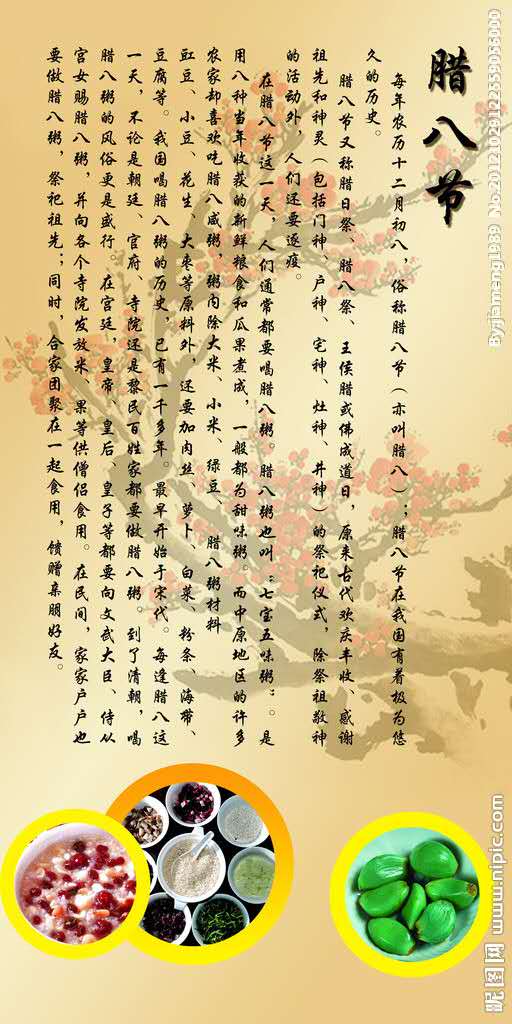 腊八节
每年农历十二月初八，俗称腊八节（亦叫腊八）；腊八节在我国有着极为悠
久的历史。
腊八节又称腊日祭、腊八祭、王侯腊或佛成道日，原来古代欢庆丰收、感谢
祖先和神灵（包括门神、户神、宅神、灶神、井神）的祭祀仪式，除祭祖敬神
的活动外，人们还要逐疫。
在腊八节这一天，人们通常都要喝腊八粥。腊八粥也叫“七宝五味粥”。是
用八种当年收获的新鲜粮食和瓜果煮成，一般都为甜味粥。而中原地区的许多
农家却喜欢吃腊八咸粥，粥内除大米、小米、绿豆、 腊八粥材料
豇豆、小豆、花生、大枣等原料外，还要加肉丝、萝卜、白菜、粉条、海带、
豆腐等。我国喝腊八粥的历史，已有一千多年。最早开始于宋代。每逢腊八这
一天，不论是朝廷、官府、寺院还是黎民百姓家都要做腊八粥。到了清朝，喝
腊八粥的风俗更是盛行。在宫廷，皇帝、皇后、皇子等都要向文武大臣、侍从
宫女赐腊八粥，并向各个寺院发放米、果等供僧侣食用。在民间，家家户户也
要做腊八粥，祭祀祖先；同时，合家团聚在一起食用，馈赠亲朋好友。
By:jiameng1989 No.20121029122559056000
昵图网 www.nipic.com